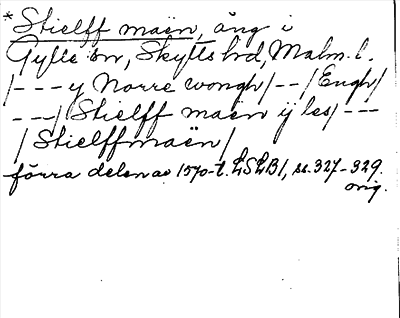 *Stielff maën, äng i
Gylle sn, Skytts hd, Malm. l.
/---y Norre wongh/--/Engh/
---/Stielff maën ij les/---
/Stielffmaën/
förra delen av 1570-t. LSLB1, ss. 327-329.
orig.